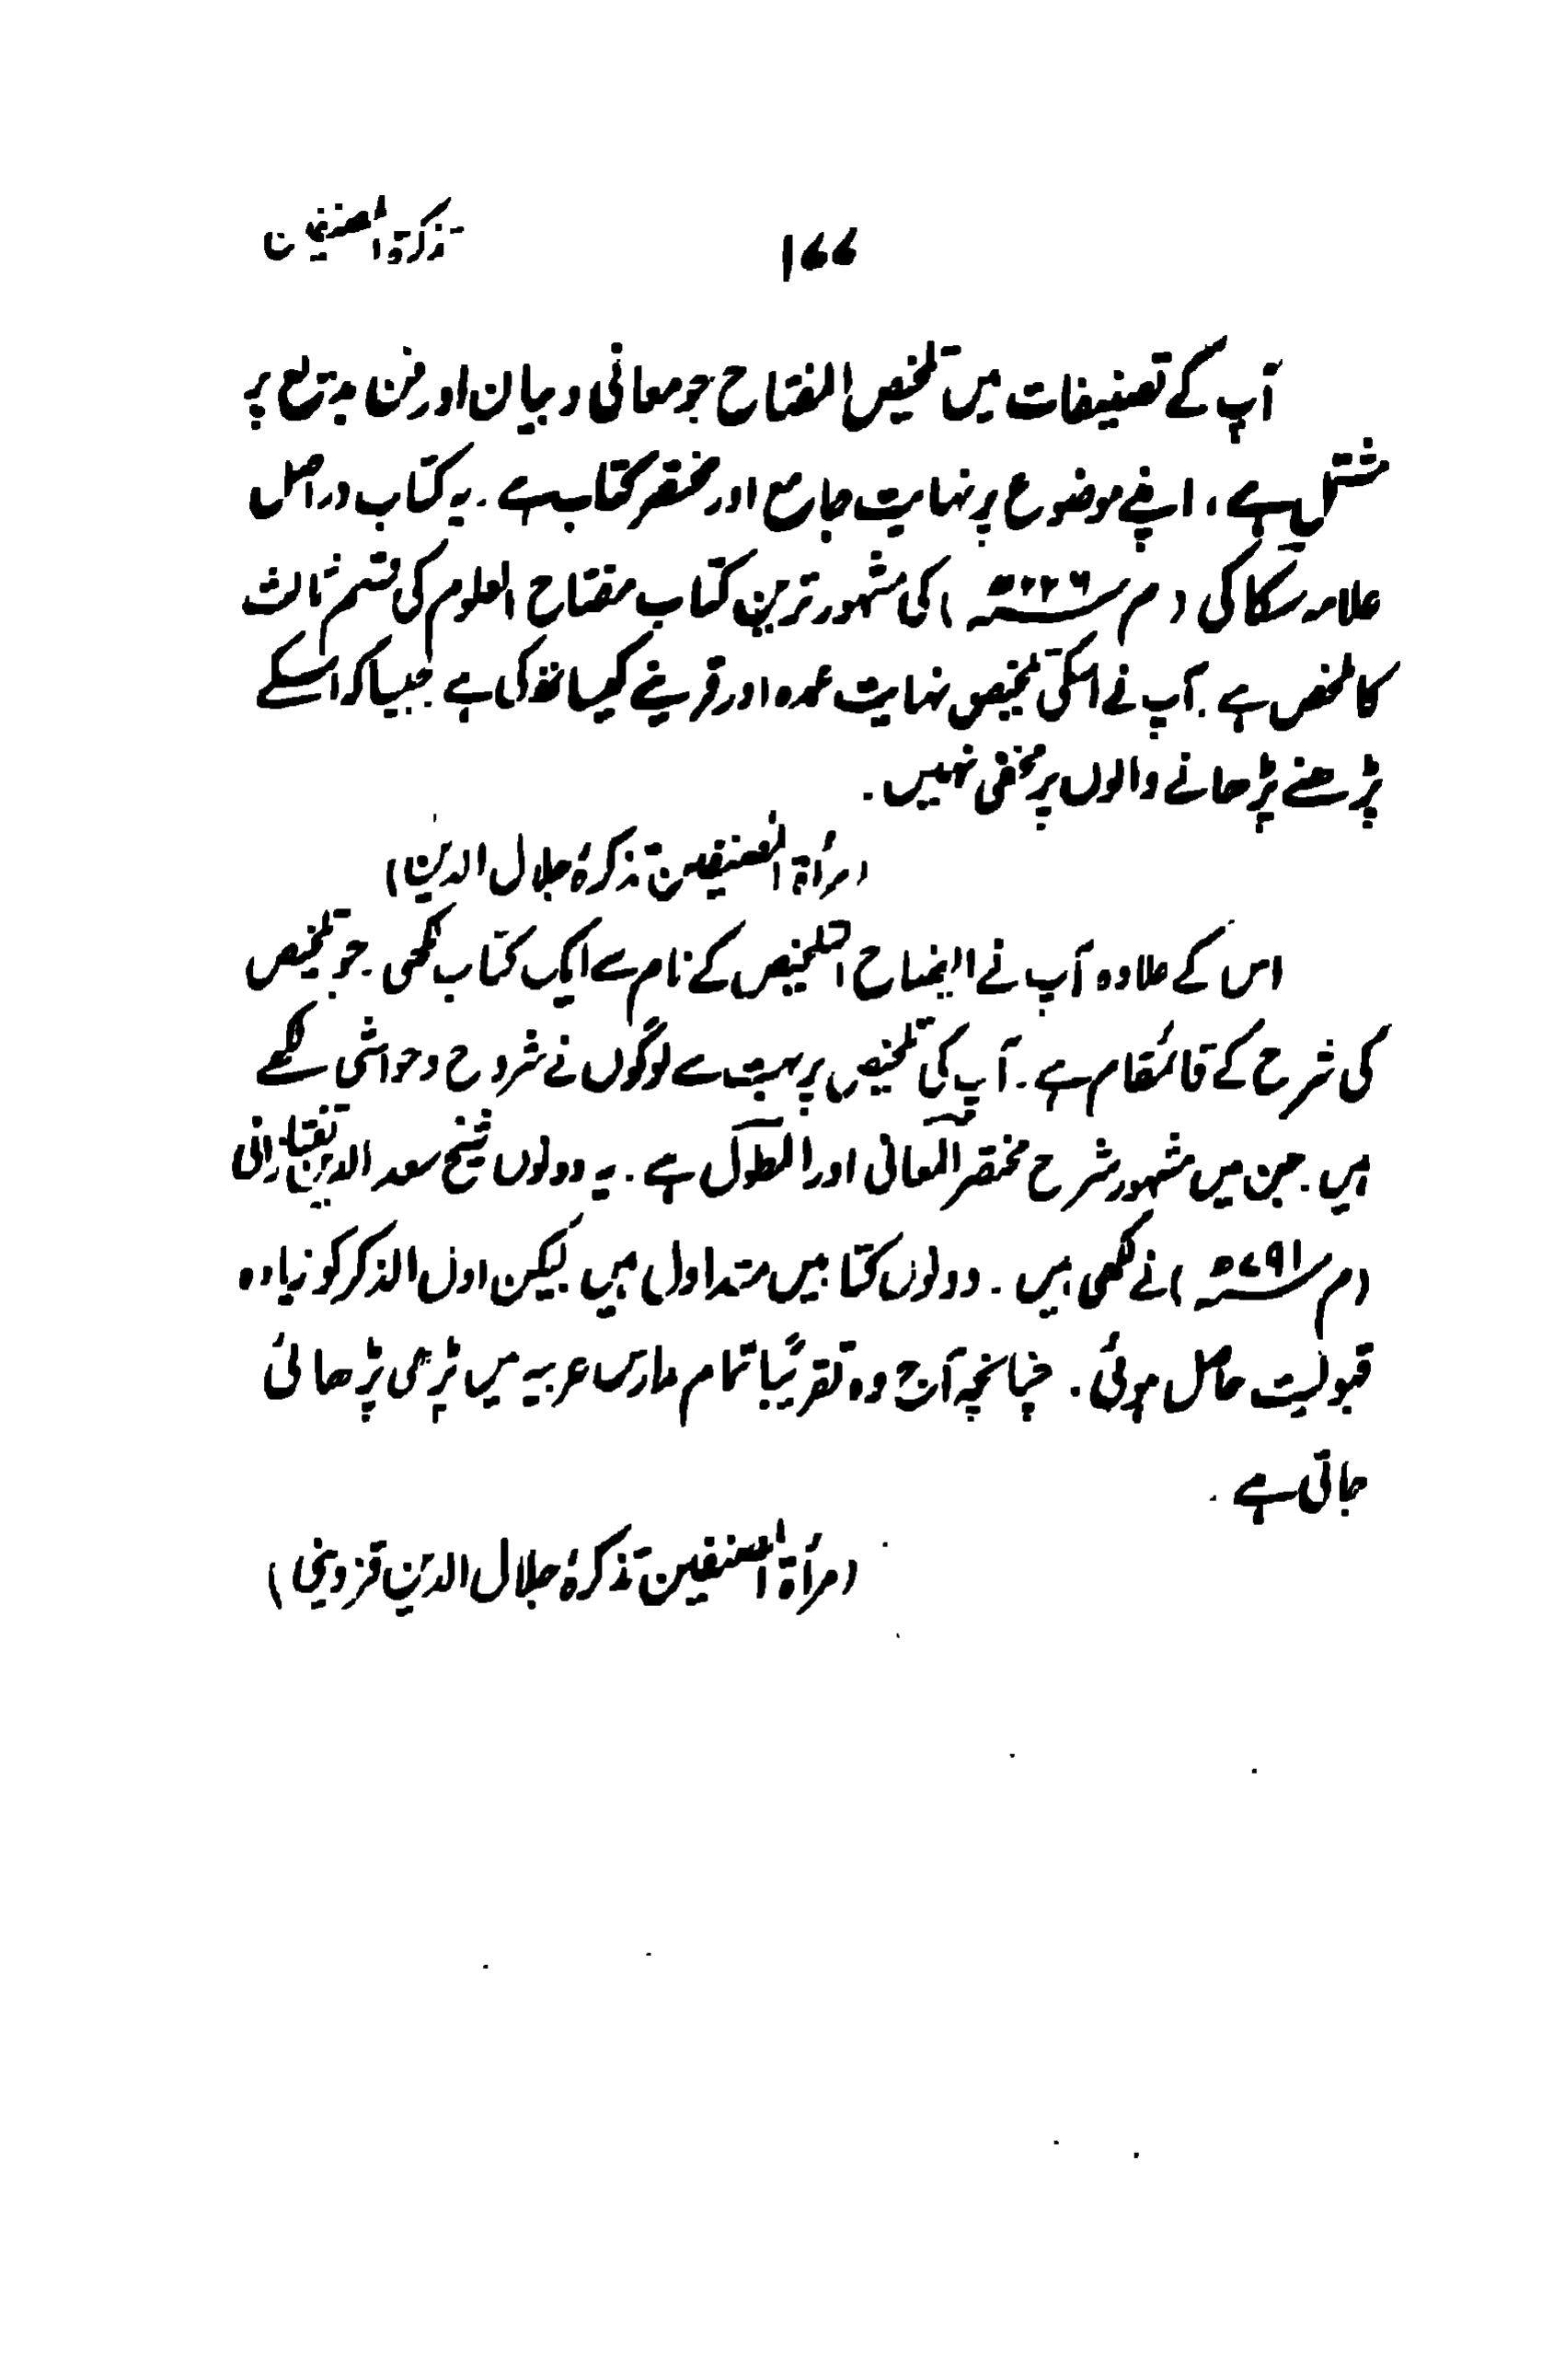 تذکرۃ المصنفین
۱۷۷
آپ کے تصنیفات میں تلخیص المفتاح جو معانی و بیان اور فن بدیع پر
مشتمل ہے، اپنے موضوع پر نہایت جامع اور مختصر کتاب ہے۔ یہ کتاب دراصل
علامہ سکاکی (م ۶۲۶ھ) کی مشہور ترین کتاب مفتاح العلوم کی قسم ثالث
کا ملخص ہے۔ آپ نے اسکی تلخیص نہایت عمدہ اور قرینے کیساتھ کی ہے جیسا کہ اسکے
پڑھنے پڑھانے والوں پر مخفی نہیں۔
(مرأۃ المصنفین تذکرۂ جلال الدین)
اس کے علاوہ آپ نے ایضاح التلخیص کے نام سے ایک کتاب لکھی۔ جو تلخیص
کی شرح کے قائمقام ہے۔ آپ کی تلخیص پر بہت سے لوگوں نے شروح و حواشی لکھے
ہیں۔ جن میں مشہور شرح مختصر المعانی اور المطول ہے۔ یہ دونوں شیخ سعد الدین تفتازانی
(م ۷۹۱ھ) نے لکھی ہیں۔ دونوں کتابیں متداول ہیں لیکن اول الذکر کو زیادہ
قبولیت حاصل ہوئی۔ چنانچہ آج وہ تقریباً تمام مدارس عربیہ میں پڑھی پڑھائی
جاتی ہے۔
(مرأۃ المصنفین تذکرۂ جلال الدین قزوینی)